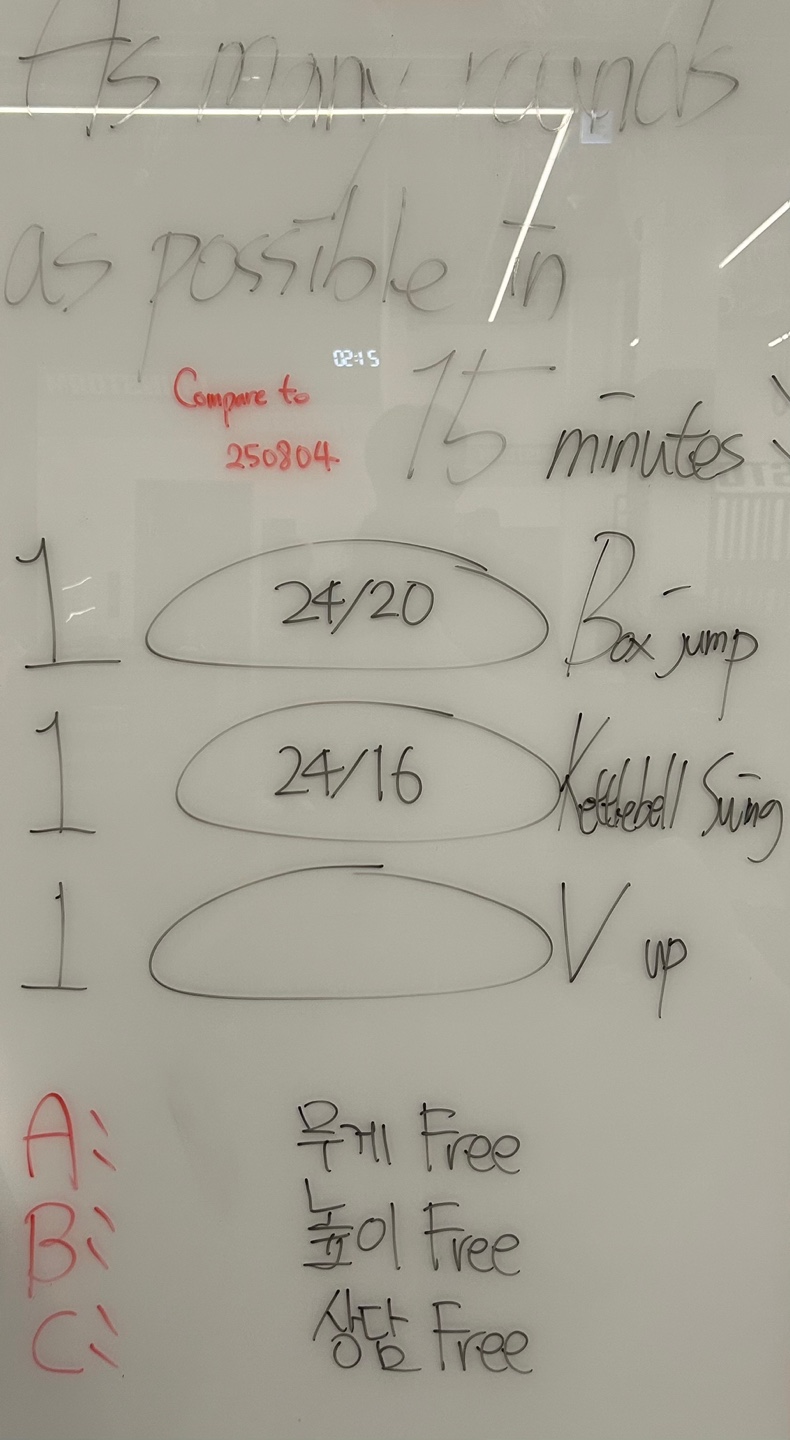 As many rounds
as possible in
02:15
15 minutes
Compare to
250804
1 24/20 Box jump
1 24/16 Kettlebell Swing
1 V up
A: 무게 Free
B: 높이 Free
C: 상담 Free